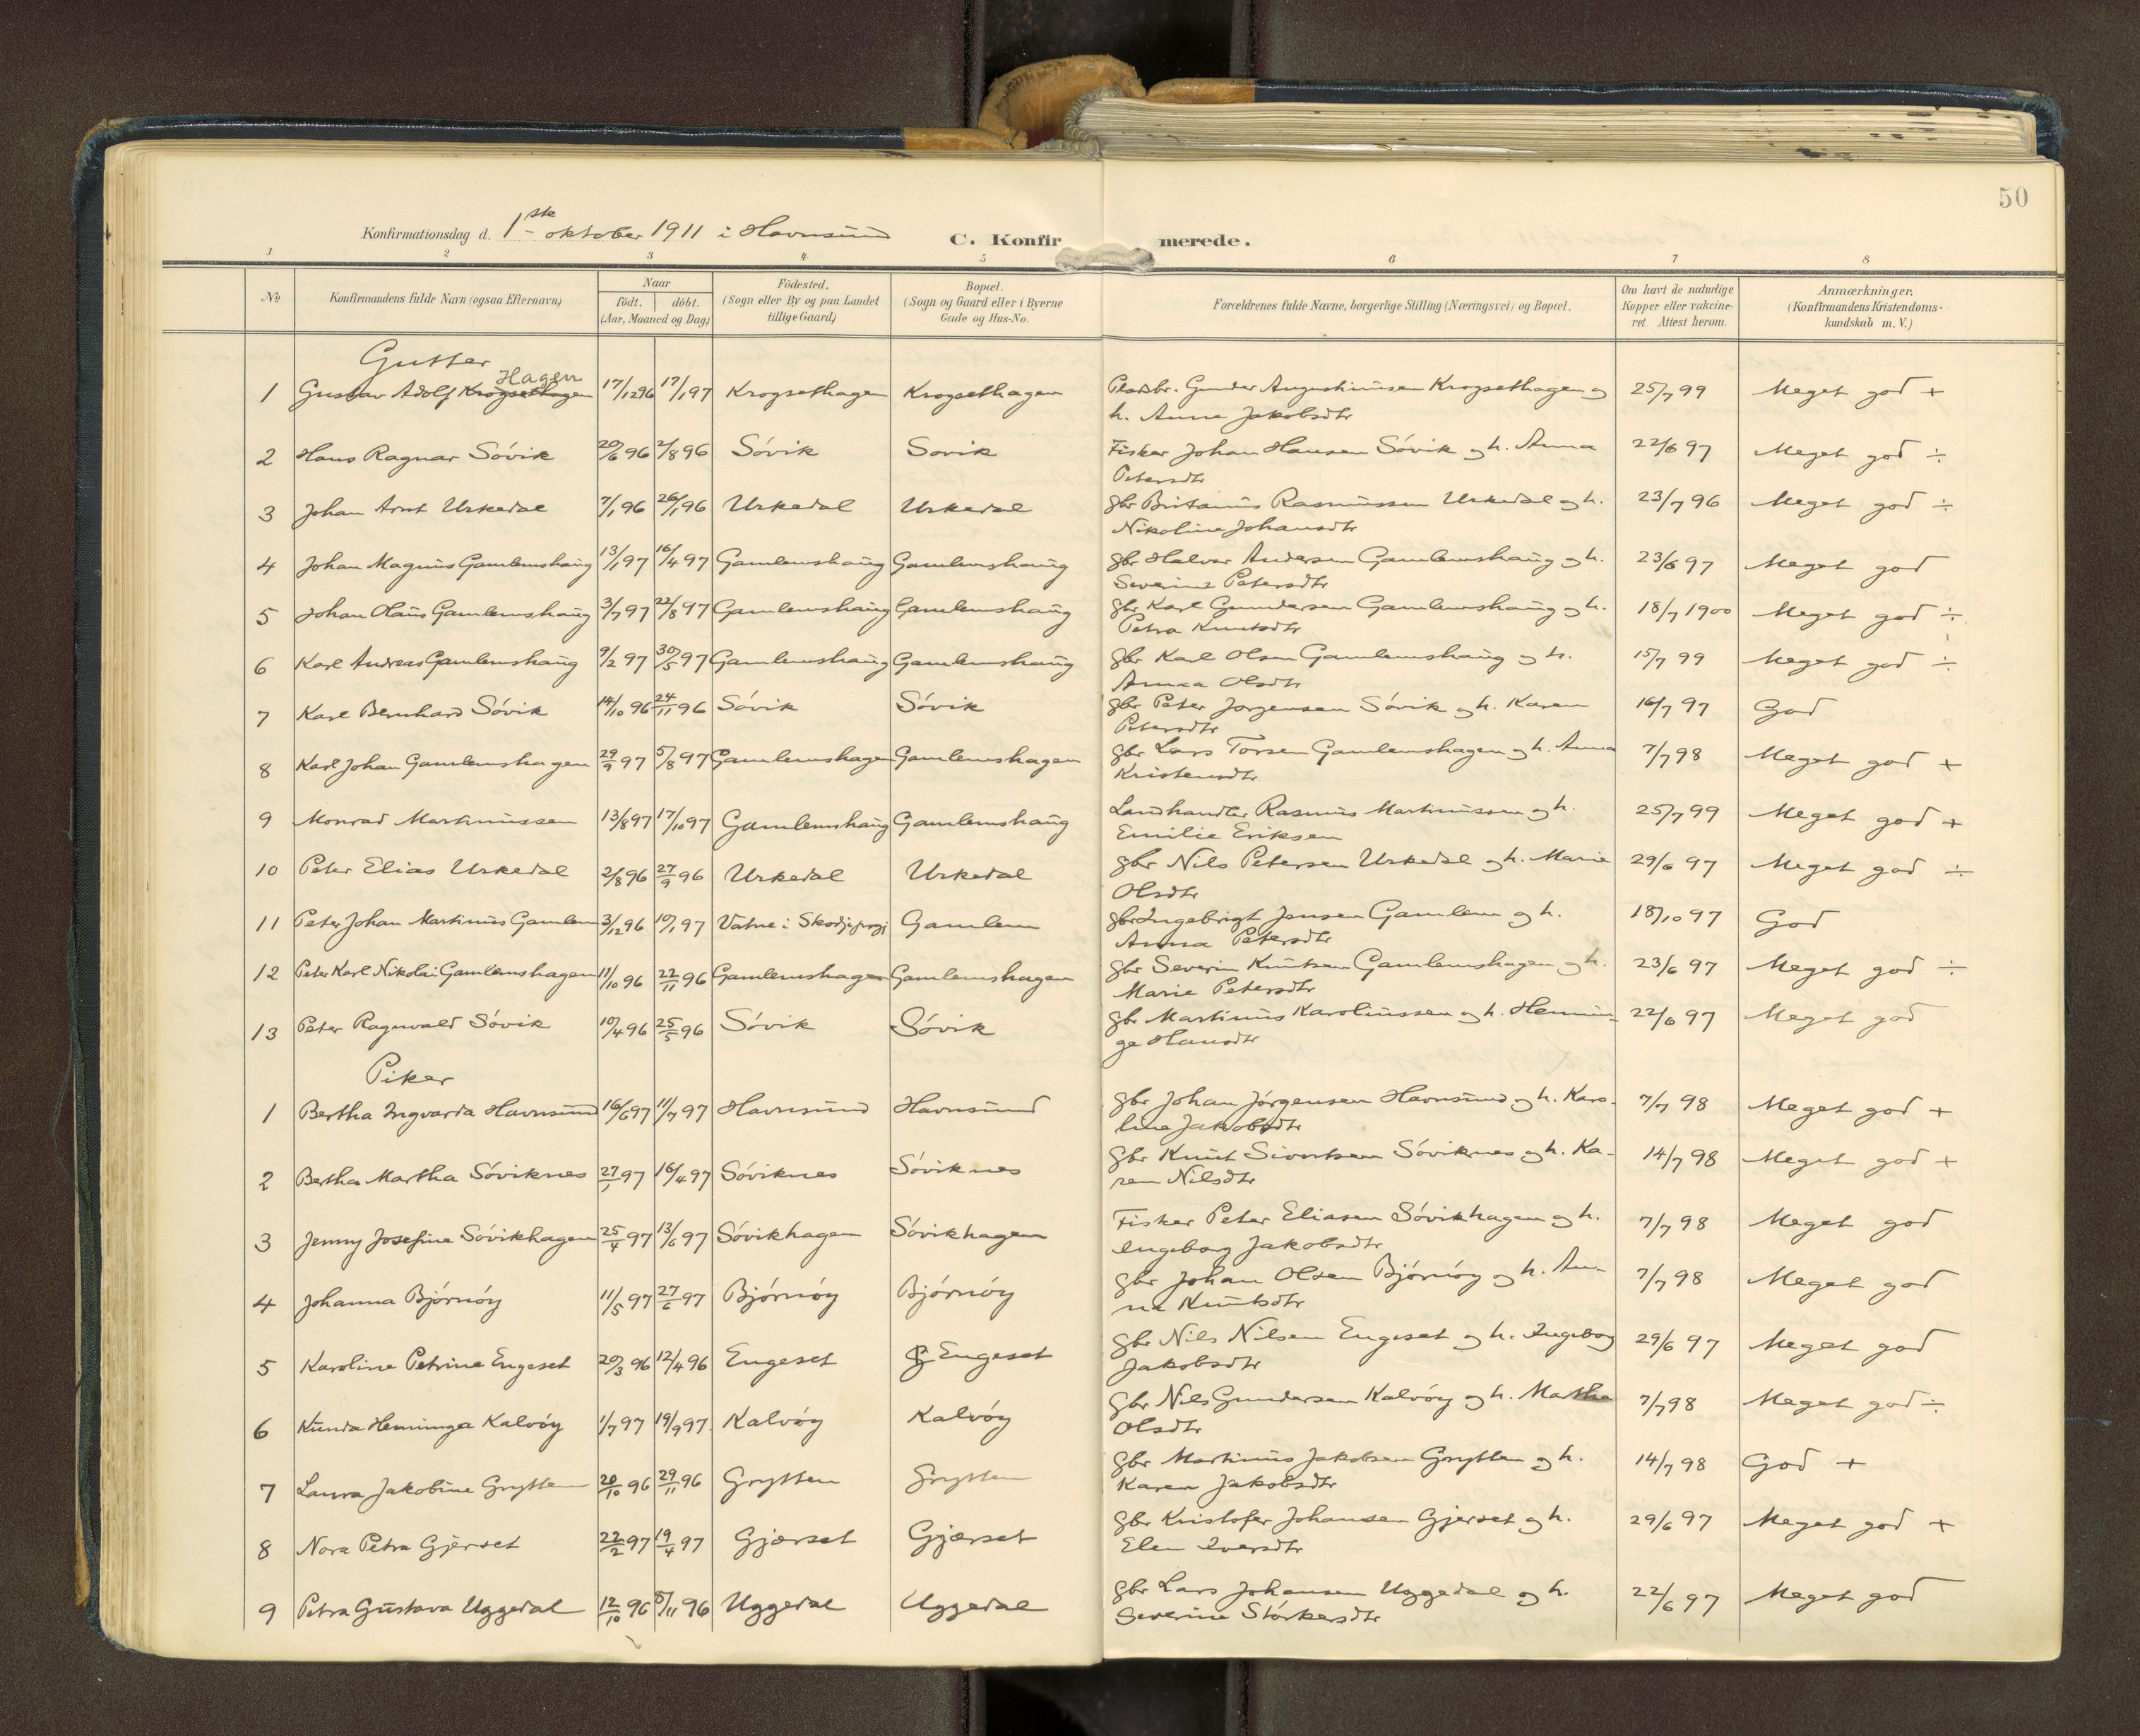 50
Konfirmationsdag d. 1ste oktober 1911 i Havnsund C. Konfirmerede.
1 2 3 4 5 6 7 8
No Konfirmandens fulde Navn (ogsaa Efternavn) Naar födt. döbt. (Aar, Maaned og Dag) Födested. (Sogn eller By og paa Landet tillige Gaard) Bopæl. (Sogn og Gaard eller i Byerne Gade og Hus-No. Forældrenes fulde Navne, borgerlige Stilling (Næringsvei) og Bopæl. Om havt de naturlige Kopper eller vakcineret Attest herom. Anmærkninger, (Konfirmandens Kristendomskundskab m.V.)
Gutter
Hagen
1 Gustav Adolf Krogsethagen 17/12 96 17/1 97 Krogsethagen Krogsethagen Pladsbr. Gunder Augustinusen Krogsethagen og 25/7 99 Meget god +
h. Anne Jakobsdtr
2 Hans Ragnar Sóvik 20/6 96 2/8 96 Sóvik Sovik Fisker Johan Hansen Sóvik og h. Anna 22/6 97 Meget god ÷
Petersdtr
3 Johan Arnt Urkedal 7/1 96 26/1 96 Urkedal Urkedal gbr Britanus Rasmussen Urkedal og h. 23/7 96 Meget god ÷
Nikoline Johansdtr
4 Johan Magnus Gamlemshaug 13/1 97 16/4 97 Gamlemshaug Gamlemshaug gbr Halvor Andersen Gamlemshaug og h. 23/6 97 Meget god
Severine Petersdtr
5 Johan Olaus Gamlemshaug 3/7 97 22/8 97 Gamlemshaug Gamlemshaug gbr Karl Gundersen Gamlemshaug og h. 18/7 1900 Meget god ÷
Petra Knutsdtr
6 Karl Andreas Gamlemshaug 9/2 97 30/5 97 Gamlemshaug Gamlemshaug gbr Karl Olsen Gamlemshaug og h. 15/7 99 Meget god ÷
Anna Olsdtr
7 Karl Bernhard Sóvik 14/10 96 24/11 96 Sóvik Sóvik gbr Peter Jorgensen Sóvik og h. Karen 16/7 97 God
Petersdtr
8 Karl Johan Gamlemshagen 29/9 97 5/8 97 Gamlemshagen Gamlemshagen gbr Lars Torsen Gamlemshagen og h. Anna 7/7 98 Meget god +
Kristensdtr
9 Monrad Martinussen 13/8 97 17/10 97 Gamlemshaug Gamlemshaug Landhandler Rasmus Martinussen og h. 25/7 99 Meget god +
Emilie Eriksen
10 Peter Elias Urkedal 2/8 96 27/9 96 Urkedal Urkedal gbr Nils Petersen Urkedal og h. Marie 29/6 97 Meget god ÷
Olsdtr
11 Peter Johan Martinus Gamlem 3/12 96 10/1 97 Vatne i Gamlem gbr Ingebrigt Jensen Gamlem og h. 18/10 97 God
Anna Petersdtr
12 Peter Karl Nikolai Gamlemshagen 11/10 96 22/11 96 Gamlemshagen Gamlemshagen gbr Severin Knutsen Gamlemshagen og h. 23/6 97 Meget god ÷
Marie Petersdtr
13 Peter Ragnvald Sóvik 10/4 96 25/5 96 Sóvik Sóvik gb Martinus Karolinussen og h. Hennin- 22/6 97 Meget god
ge Hansdtr
Piker
1 Bertha Ingvarda Havnsund 16/6 97 11/7 97 Havnsund Havnsund gbr Johan Jórgensen Havnsund og h. Karo- 7/7 98 Meget god +
line Jakobsdtr
2 Bertha Martha Sóviknes 27/1 97 16/4 97 Sóviknes Sóviknes gbr Knut Sivertsen Sóviknes og h. Ka- 14/7 98 Meget god +
ren Nilsdtr
3 Jenny Josefine Sóvikhagen 25/4 97 13/6 97 Sóvikhagen Sóvikhagen Fisker Peter Eliasen Sóvikhagen og h. 7/7 98 Meget god
Ingeborg Jakobsdtr
4 Johanna Bjórnóy 11/5 97 27/6 97 Bjórnóy Bjórnóy gbr Johan Olsen Bjórnóy og h. An- 7/7 98 Meget god
na Knutsdtr
5 Karoline Petrine Engeset 20/3 96 12/4 96 Engeset Engeset gbr Nils Nilsen Engeset og h. Ingeborg 29/6 97 Meget god
Jakobsdtr
6 Kunda Henninga Kalvóy 1/7 97 19/9 97 Kalvóy Kalvóy gbr Nils Gundersen Kalvóy og h. Martha 7/7 98 Meget god ÷
Olsdtr
7 Laura Jakobine Grytten 20/10 96 29/11 96 Grytten Grytten gbr Martinus Jakobsen Grytten og h. 14/7 98 God +
Karen Jakobsdtr
8 Nora Petra Gjerset 22/2 97 19/4 97 Gjærset Gjærset gbr Kristofer Johansen Gjerset og h. 29/6 97 Meget god +
Elen Iversdtr
9 Petra Gustava Uggedal 12/10 96 8/11 96 Uggedal Uggedal gbr Lars Johansen Uggedal og h. 22/6 97 Meget god
Severine Stórkersdtr